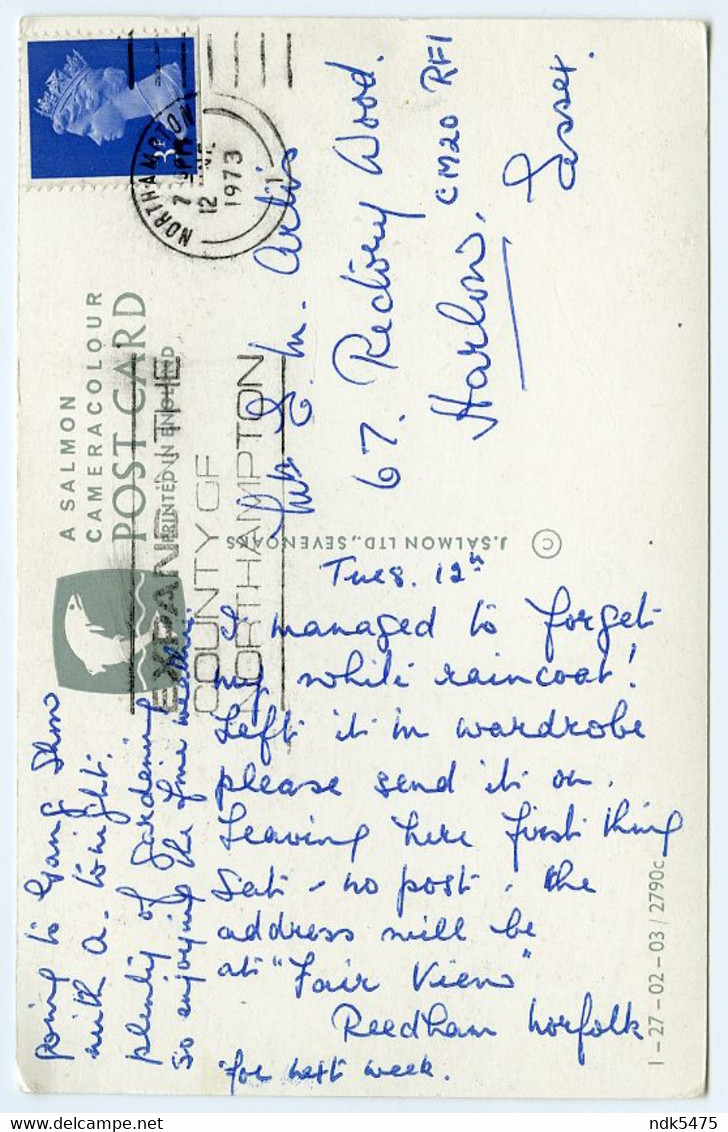 A SALMON
CAMERACOLOUR
POST CARD
PRINTED IN ENGLAND
NORTHAMPTON
7 PM
12
1973
1
EXPAND IN THE
COUNTY OF
NORTHAMPTON
E. M. Artis
67. Rectory Wood.
Harlow. CM20 RF1
Essex.
© J. SALMON LTD., SEVENOAKS
Tues. 12th
I managed to forget
my white raincoat!
Left it in wardrobe
please send it on.
Leaving here first thing
Sat - no post. the
address will be
at "Fair View"
Reedham Norfolk
for next week.
going to Gang Show
with A. tonight.
plenty of gardening
so enjoying the fine weather.
1-27-02-03/2790c
ndk5475